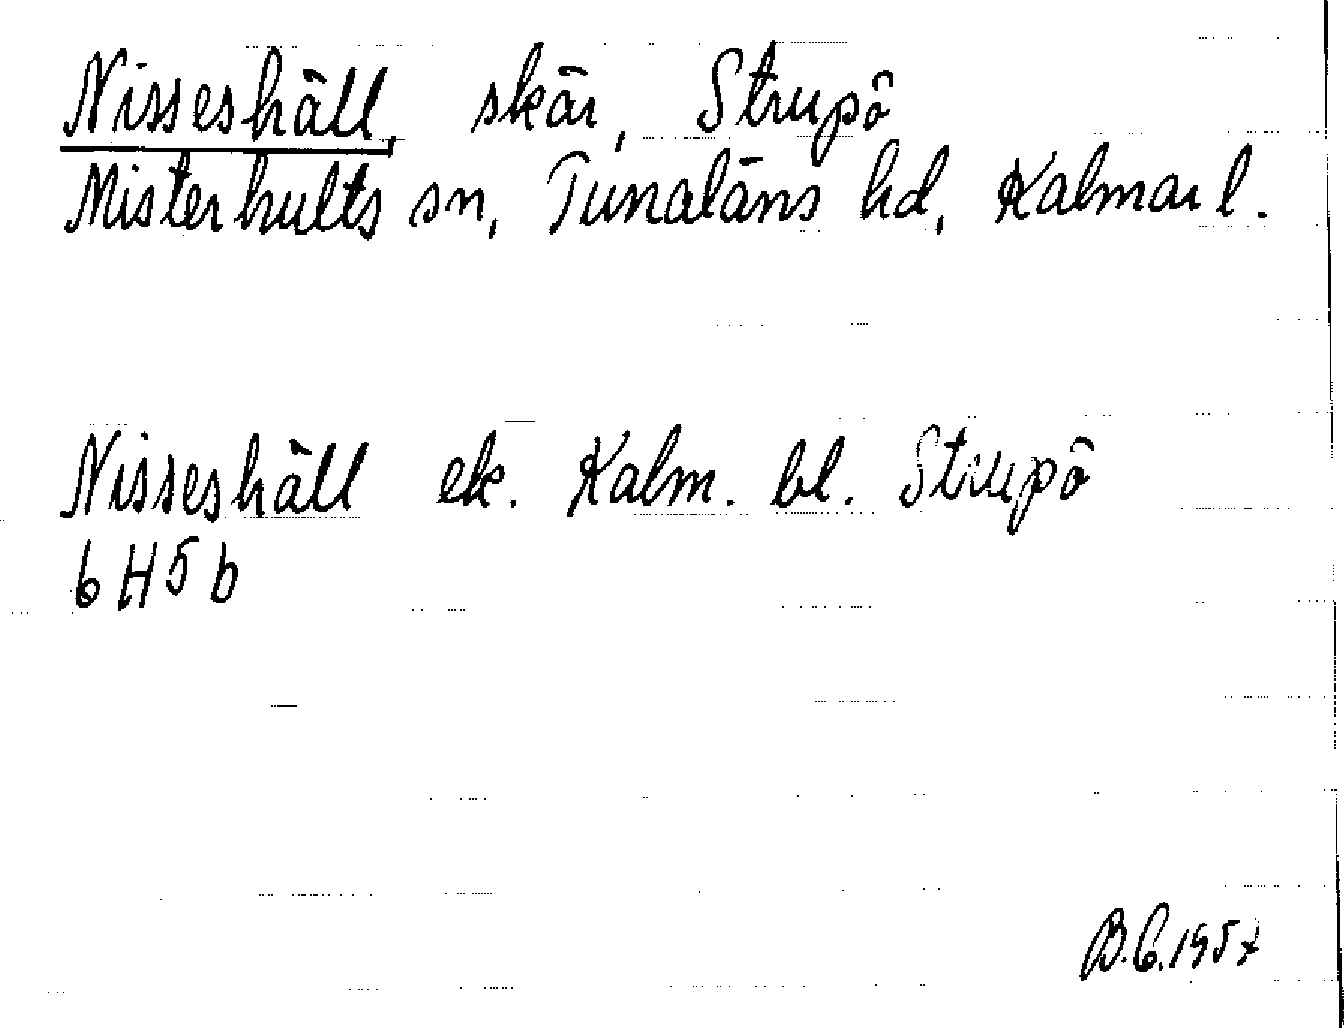 Nisseshäll, skär, Strupö
Misterhults sn, Tunaläns hd, Kalmar l.
Nisseshäll ek. Kalm. bl. Strupö
6H5b
B.C.1957